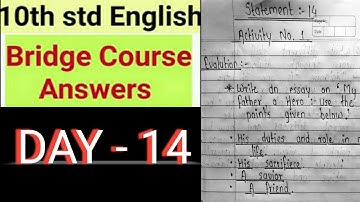 10th std English
Bridge Course
Answers
DAY - 14
Statement :- 14
Activity No. 1
Evalution :-
* Write an essay on 'My
father a Hero :- Use the
points given below.'
• His duties and role in
life.
• His sacrifiece.
• A savior
• A friend.